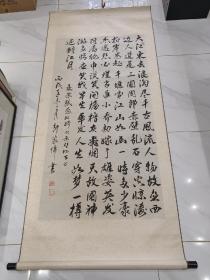 大江東去浪淘盡千古風流人物故壘西
邊人道是三國周郎赤壁亂石穿空驚濤
拍岸卷起千堆雪江山如畫一時多少豪
傑遙想公瑾當年小喬初嫁了雄姿英發
羽扇綸巾談笑間檣櫓灰飛煙滅故國神
遊多情應笑我早生華髮人生如夢一樽
還酹江月
書